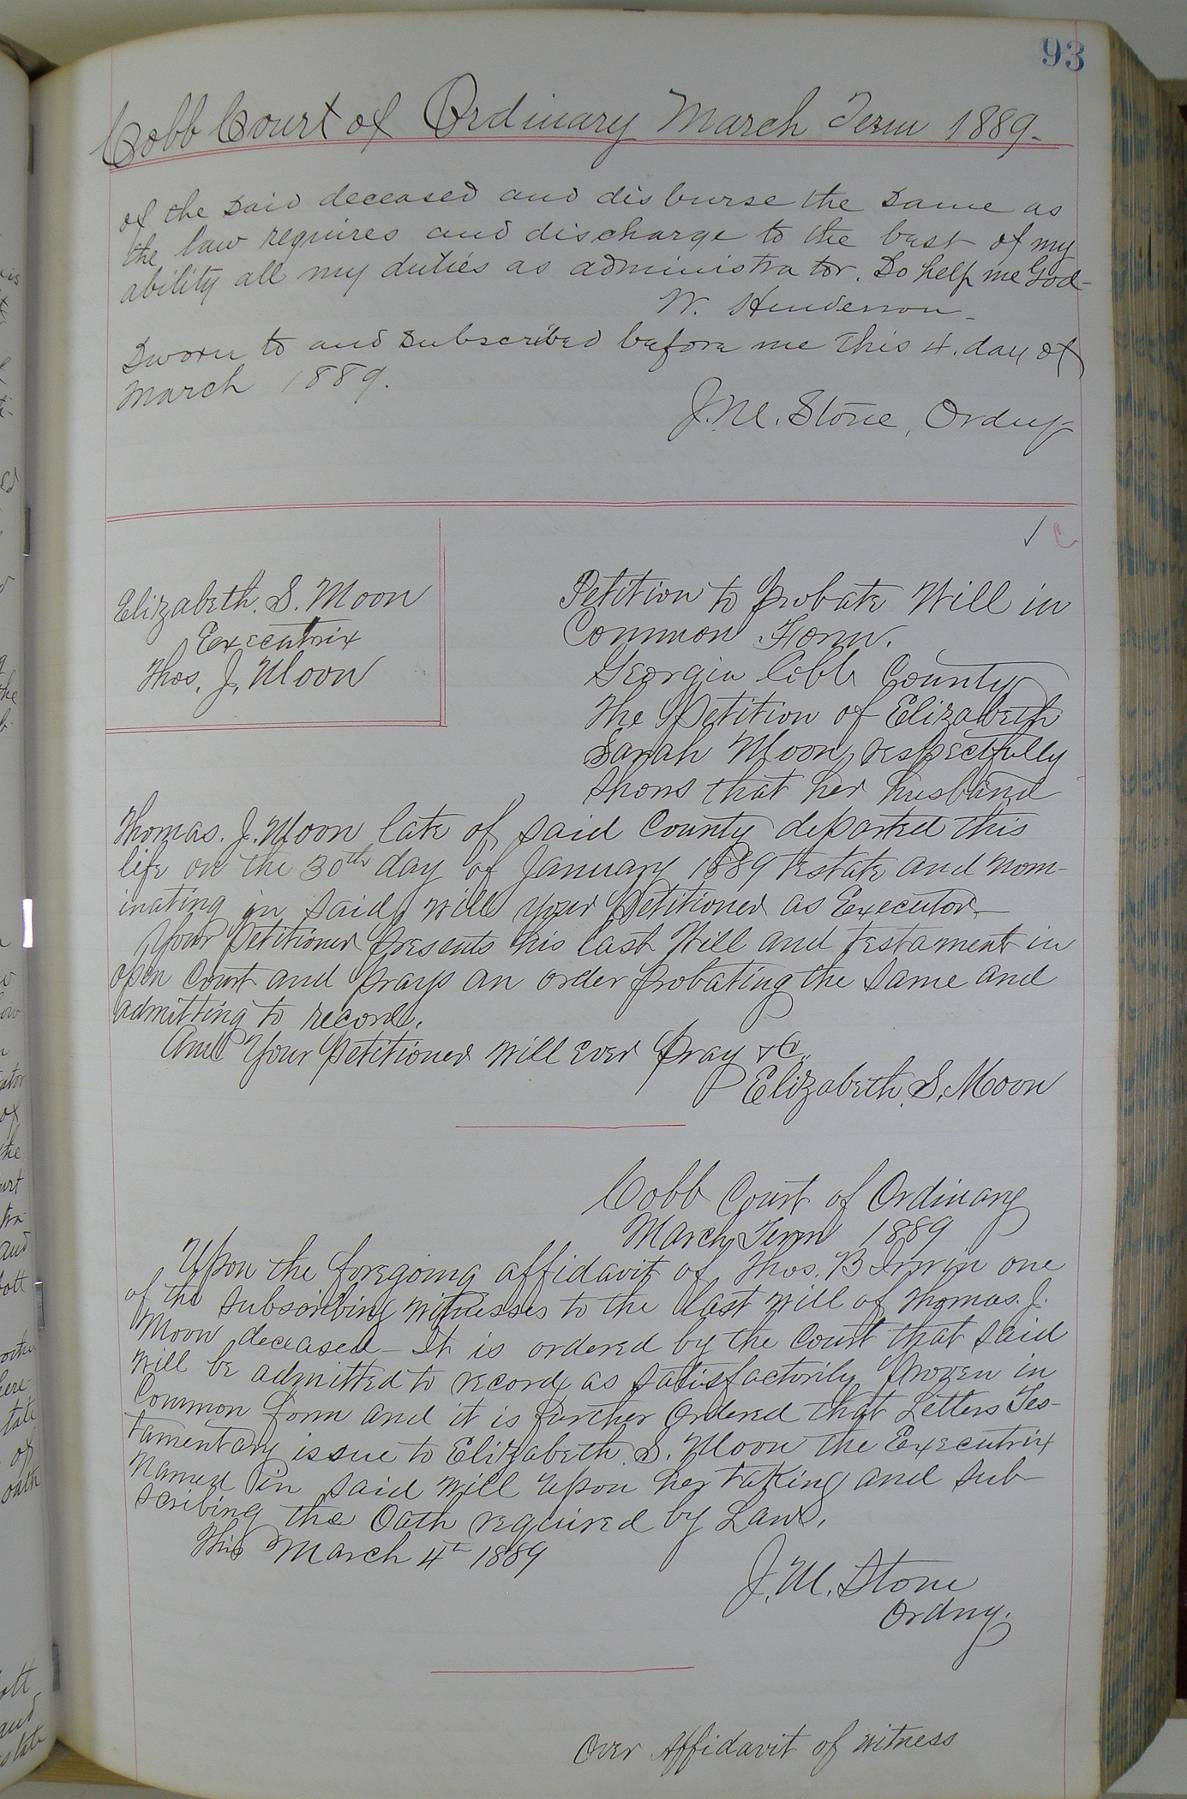 93
Cobb Court of Ordinary March Term 1889-
of the said deceased and disburse the same as
the law requires and discharge to the best of my
ability all my duties as administrator. So help me God-
W. Henderson-
Sworn to and subscribed before me this 4. day of
March 1889.
J. M. Stone, Ordny-
Elizabeth. S. Moon
Executrix
Thos. J. Moon
Petition to Probate Will in
Common Form.
Georgia Cobb County
The Petition of Elizabeth
Sarah Moon, respectfully
shows that her husband
Thomas. J. Moon late of said County departed this
life on the 30th day of January 1889 testate and nom-
inating in said will your Petitioner as Executor-
Your Petitioner presents his last Will and testament in
open Court and prays an order probating the same and
admitting to record.
And Your Petitioner will ever pray &c.,
Elizabeth. S. Moon
Cobb Court of Ordinary
March Term 1889
Upon the foregoing affidavit of Thos. B Irwin one
of the subscribing witnesses to the last will of Thomas. J.
Moon deceased- It is ordered by the Court that said
will be admitted to record as satisfactorily proven in
Common form and it is further Ordered that Letters Tes-
tamentary issue to Elizabeth. S. Moon the Executrix
Named in said will upon her taking and sub-
scribing the Oath required by Law.
This March 4th 1889
J. M. Stone
Ordny.
Over Affidavit of witness